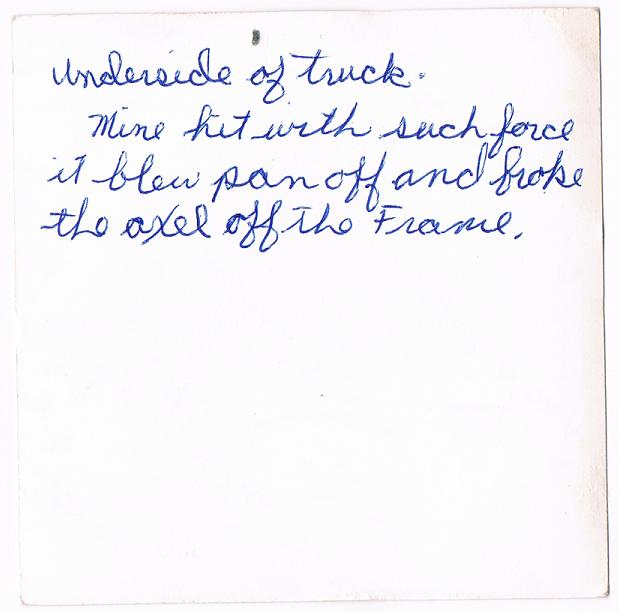 Underside of truck.
Mine hit with such force
it blew pan off and broke
the axel off the Frame.